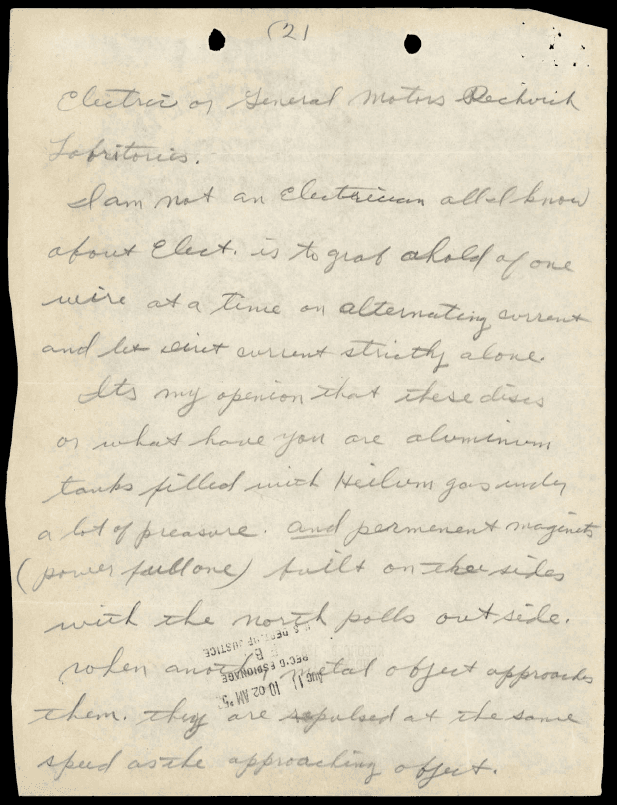 (2)
Electric or General Motors Reherich
Labritories.
I am not an Electrician all I know
about Elect. is to grab ahold of one
wire at a time on alternating current
and let dirct current strictly alone.
Its my openion that these discs
or what have you are aluminum
tanks filled with Heilum gas under
a lot of preasure. and permenent maginets
(power full one) built on the sides
with the north polls outside.
when another metal object approaches
them. they are repulsed at the same
speed as the approaching object.
U.S. DEPT. OF JUSTICE
REC'D ESPIONAGE
AUG 11 10 02 AM